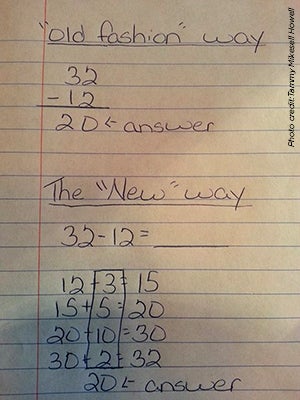 "old fashion" way
32
- 12
20 ← answer
The "New" way
32 - 12 = ________
12 + 3 = 15
15 + 5 = 20
20 + 10 = 30
30 + 2 = 32
20 ← answer
Photo credit:Tammy Mikesell Howell